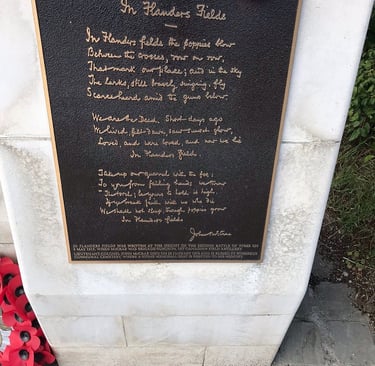 In Flanders Fields
In Flanders fields the poppies blow
Between the crosses, row on row,
That mark our place; and in the sky
The larks, still bravely singing, fly
Scarce heard amid the guns below.
We are the Dead. Short days ago
We lived, felt dawn, saw sunset glow,
Loved, and were loved, and now we lie
In Flanders fields.
Take up our quarrel with the foe;
To you from failing hands we throw
The torch; be yours to hold it high.
If ye break faith with us who die
We shall not sleep, though poppies grow
In Flanders fields
John McCrae
IN FLANDERS FIELDS WAS WRITTEN AT THE HEIGHT OF THE SECOND BATTLE OF YPRES ON
3 MAY 1915, WHEN MAJOR JOHN MCCRAE WAS
LIEUTENANT-COLONEL JOHN MCCRAE
COMMUNAL CEMETERY,